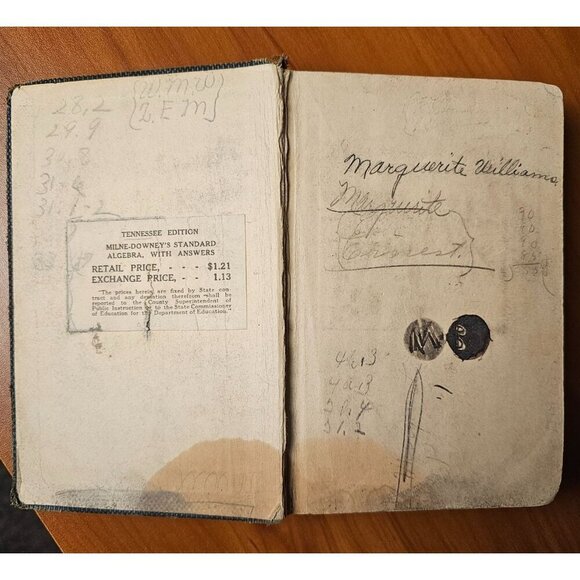 28,2
29.9
31.8
31.4
W. M. W
Z. E. M
TENNESSEE EDITION
MILNE-DOWNEY'S STANDARD
ALGEBRA, WITH ANSWERS
RETAIL PRICE, - - - $1.21
EXCHANGE PRICE, - - 1.13
"The prices herein are fixed by State con-
tract and any deviation therefrom shall be
reported to the County Superintendent of
Public Instruction or to the State Commissioner
of Education for the Department of Education."
Marguerite Williams
Marguerite
Ernest.
90
90
90
85
M
31.4
31.2